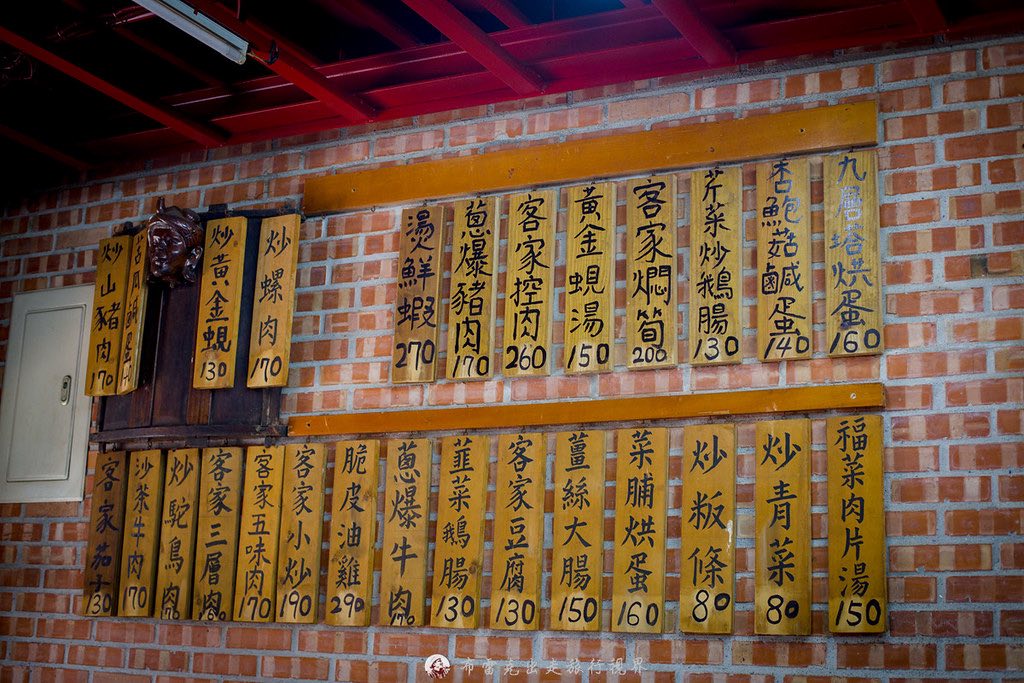 九層塔烘蛋 160
杏鮑菇鹹蛋 140
芹菜炒鵝腸 130
客家燜筍 200
黃金蜆湯 150
客家控肉 260
蔥爆豬肉 170
燙鮮蝦 270
炒螺肉 170
炒黃金蜆 130
炒山豬肉 170
福菜肉片湯 150
炒青菜 80
炒粄條 80
菜脯烘蛋 160
薑絲大腸 150
客家豆腐 130
韮菜鵝腸 130
蔥爆牛肉 170
脆皮油雞 290
客家小炒 190
客家五味肉 170
客家三層肉
炒駝鳥肉
沙茶牛肉 170
客家茄子 130
布雷克出走旅行視界